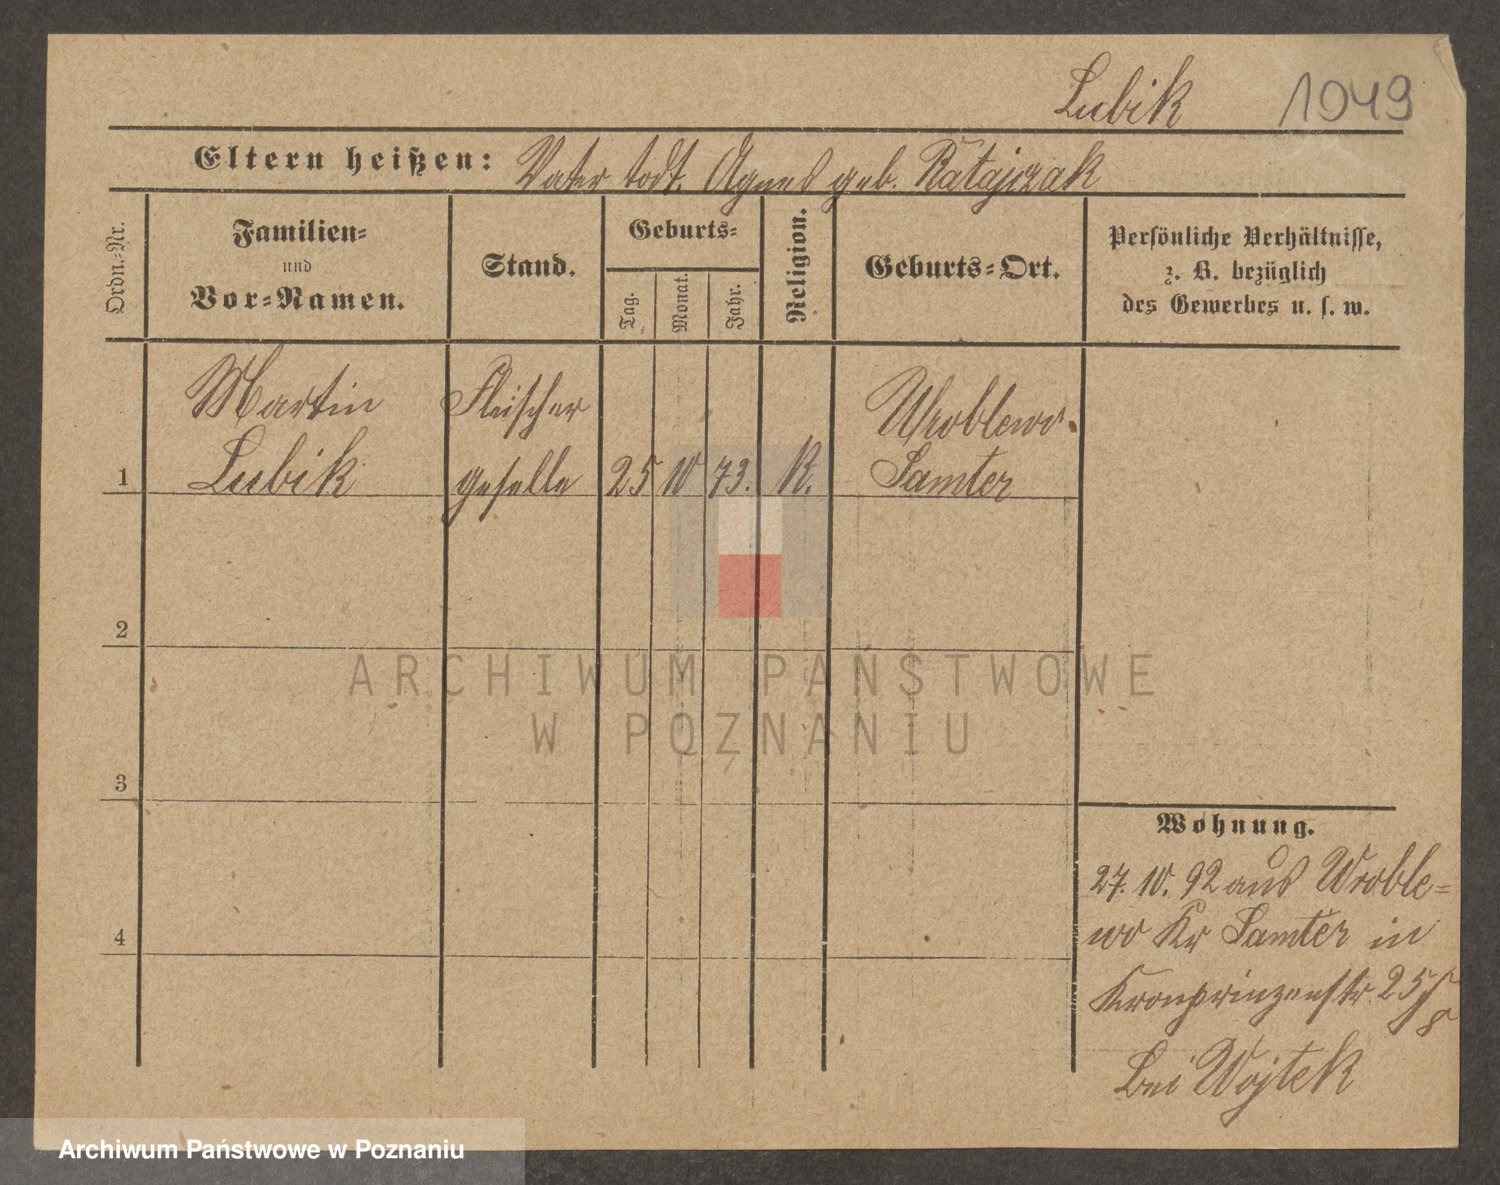 Lubik 1049
Eltern heißen: Vater todt. Agnes geb. Ratajczak
Ordn.-Nr.
Familien-
und
Vor-Namen.
Stand.
Geburts-
Tag.
Monat.
Jahr.
Religion.
Geburts-Ort.
Persönliche Verhältnisse,
z. B. bezüglich
des Gewerbes u. s. w.
Martin Fleischer Wroblewo.
1 Lubik geselle 25 10 73. K. Samter
2
3
4
Wohnung.
27. 10. 92 aus Wroble=
wo Kr Samter in
Kronprinzenstr. 25
bei Wojtek
ARCHIWUM PAŃSTWOWE
W POZNANIU
Archiwum Państwowe w Poznaniu